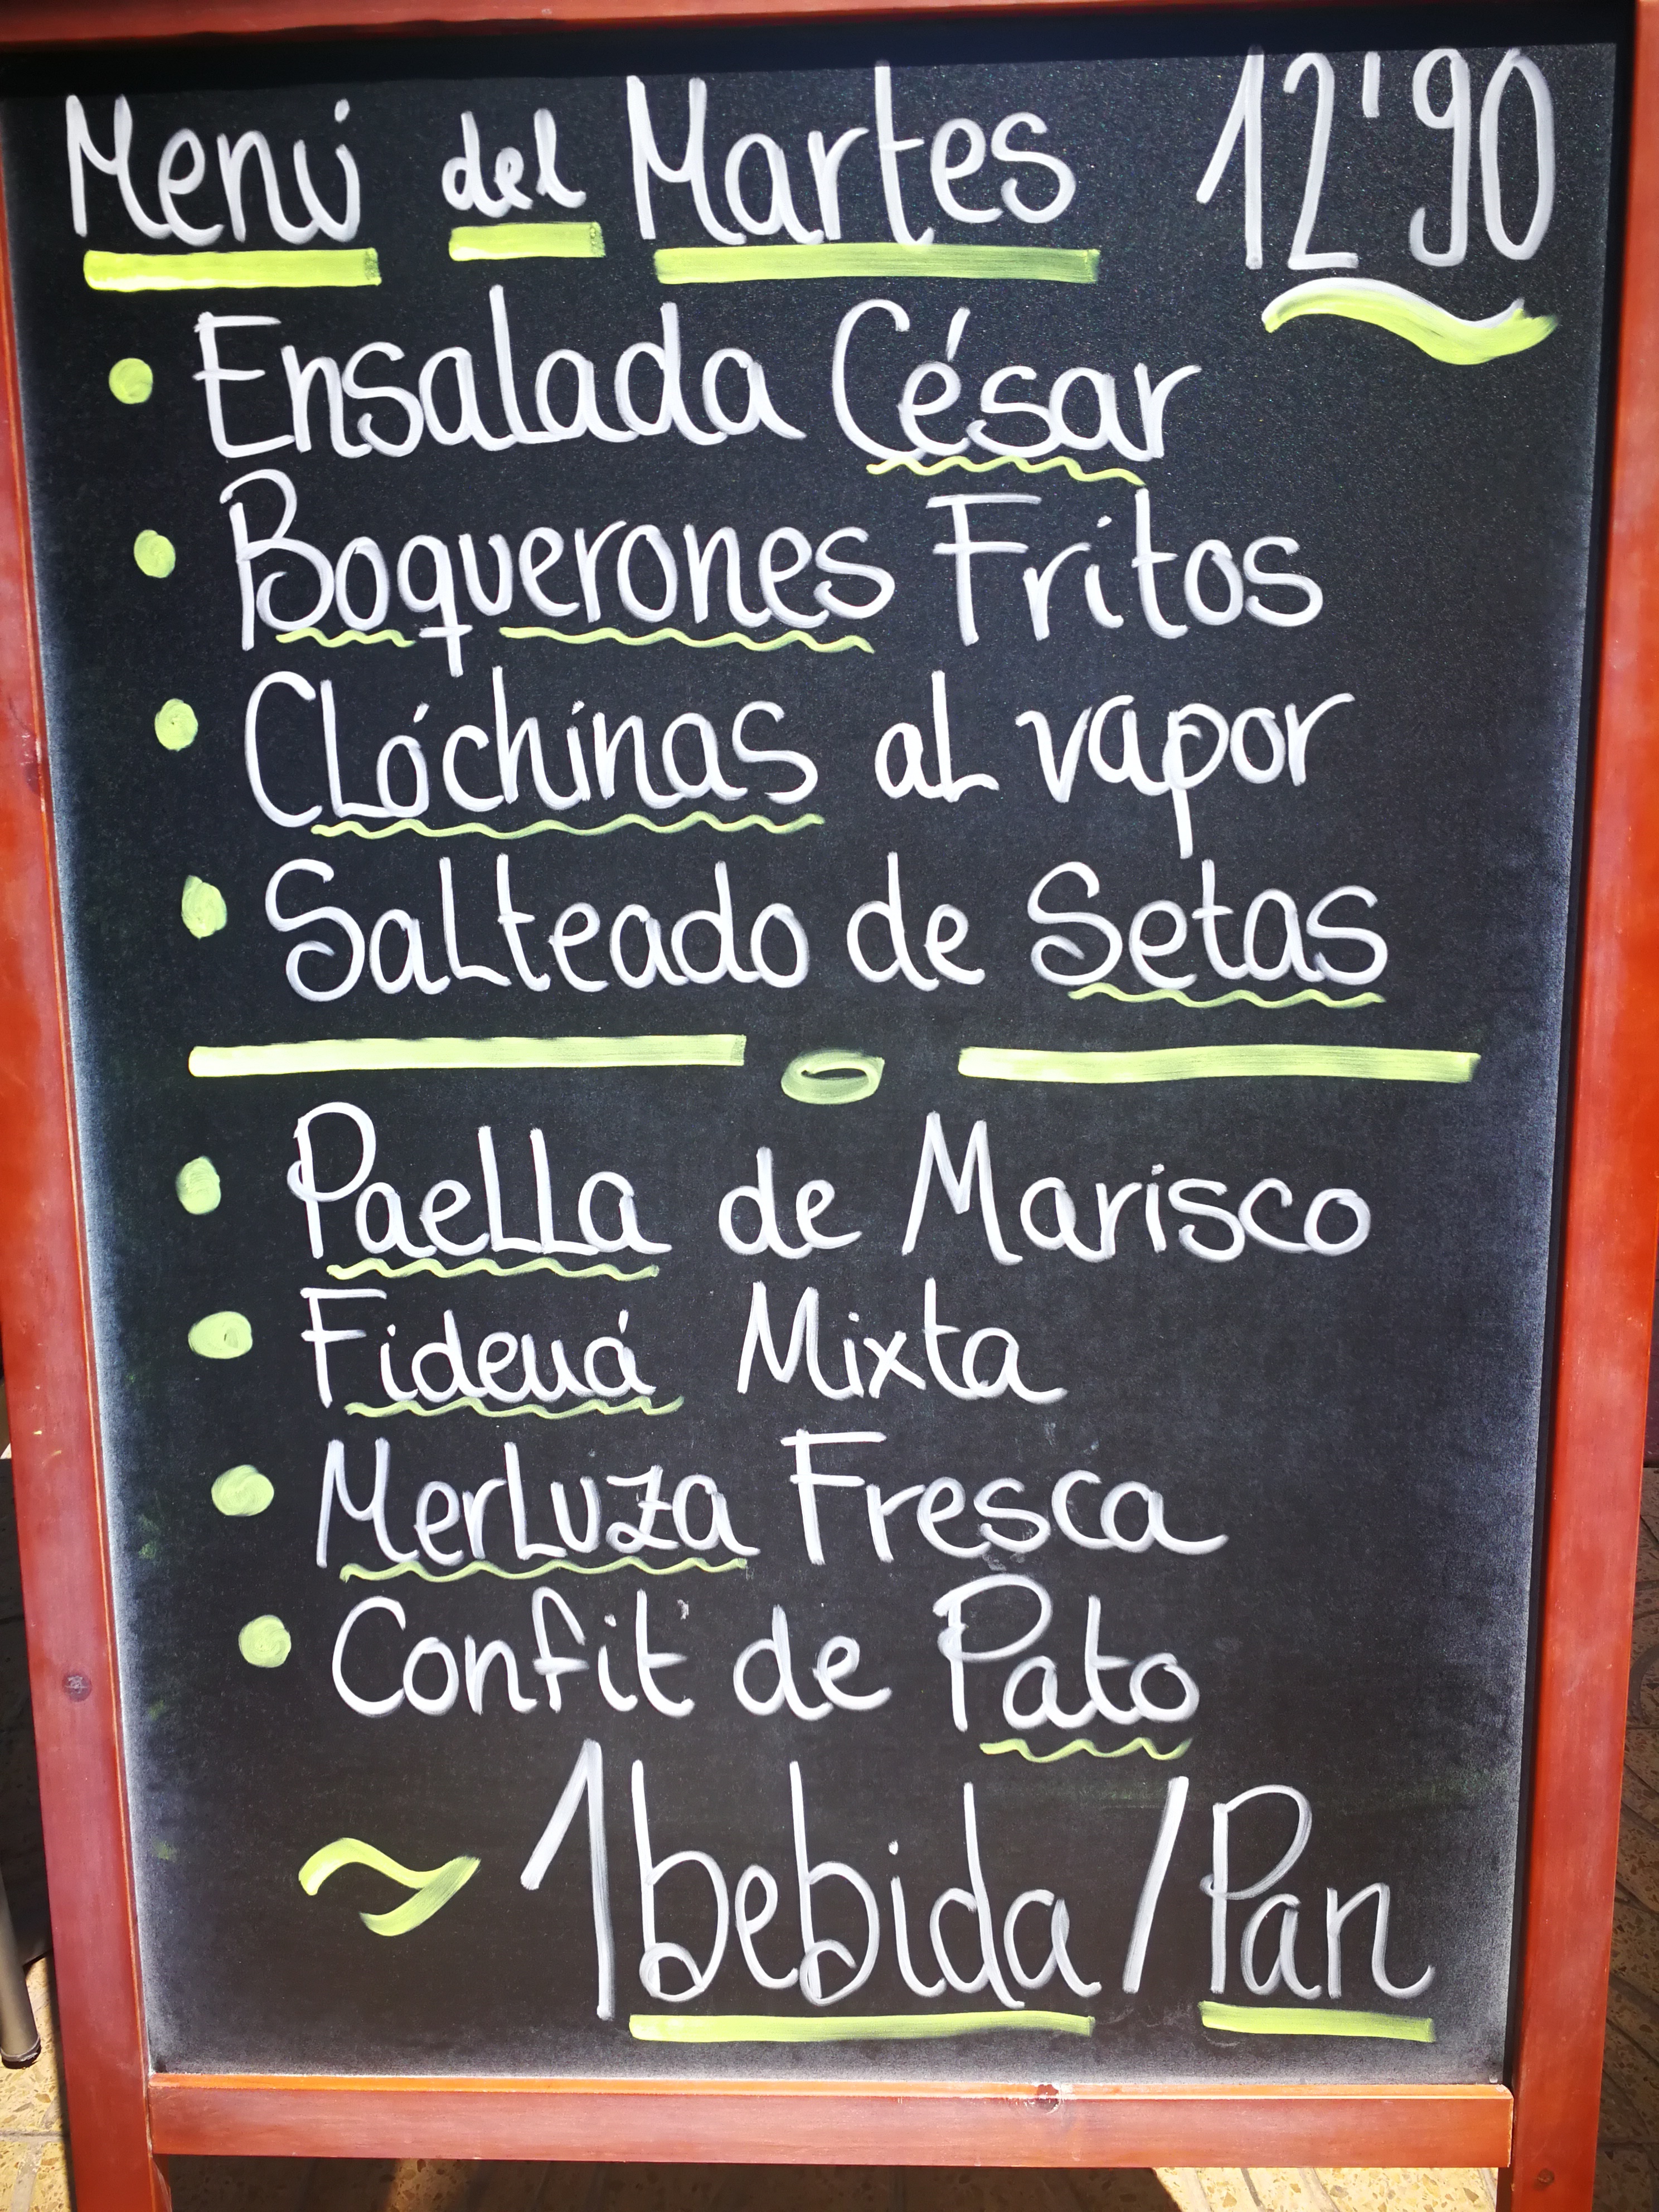 Menú del Martes 12'90
Ensalada César
Boquerones Fritos
Clóchinas al vapor
Salteado de Setas
Paella de Marisco
Fideuá Mixta
Merluza Fresca
Confit de Pato
1 bebida / Pan